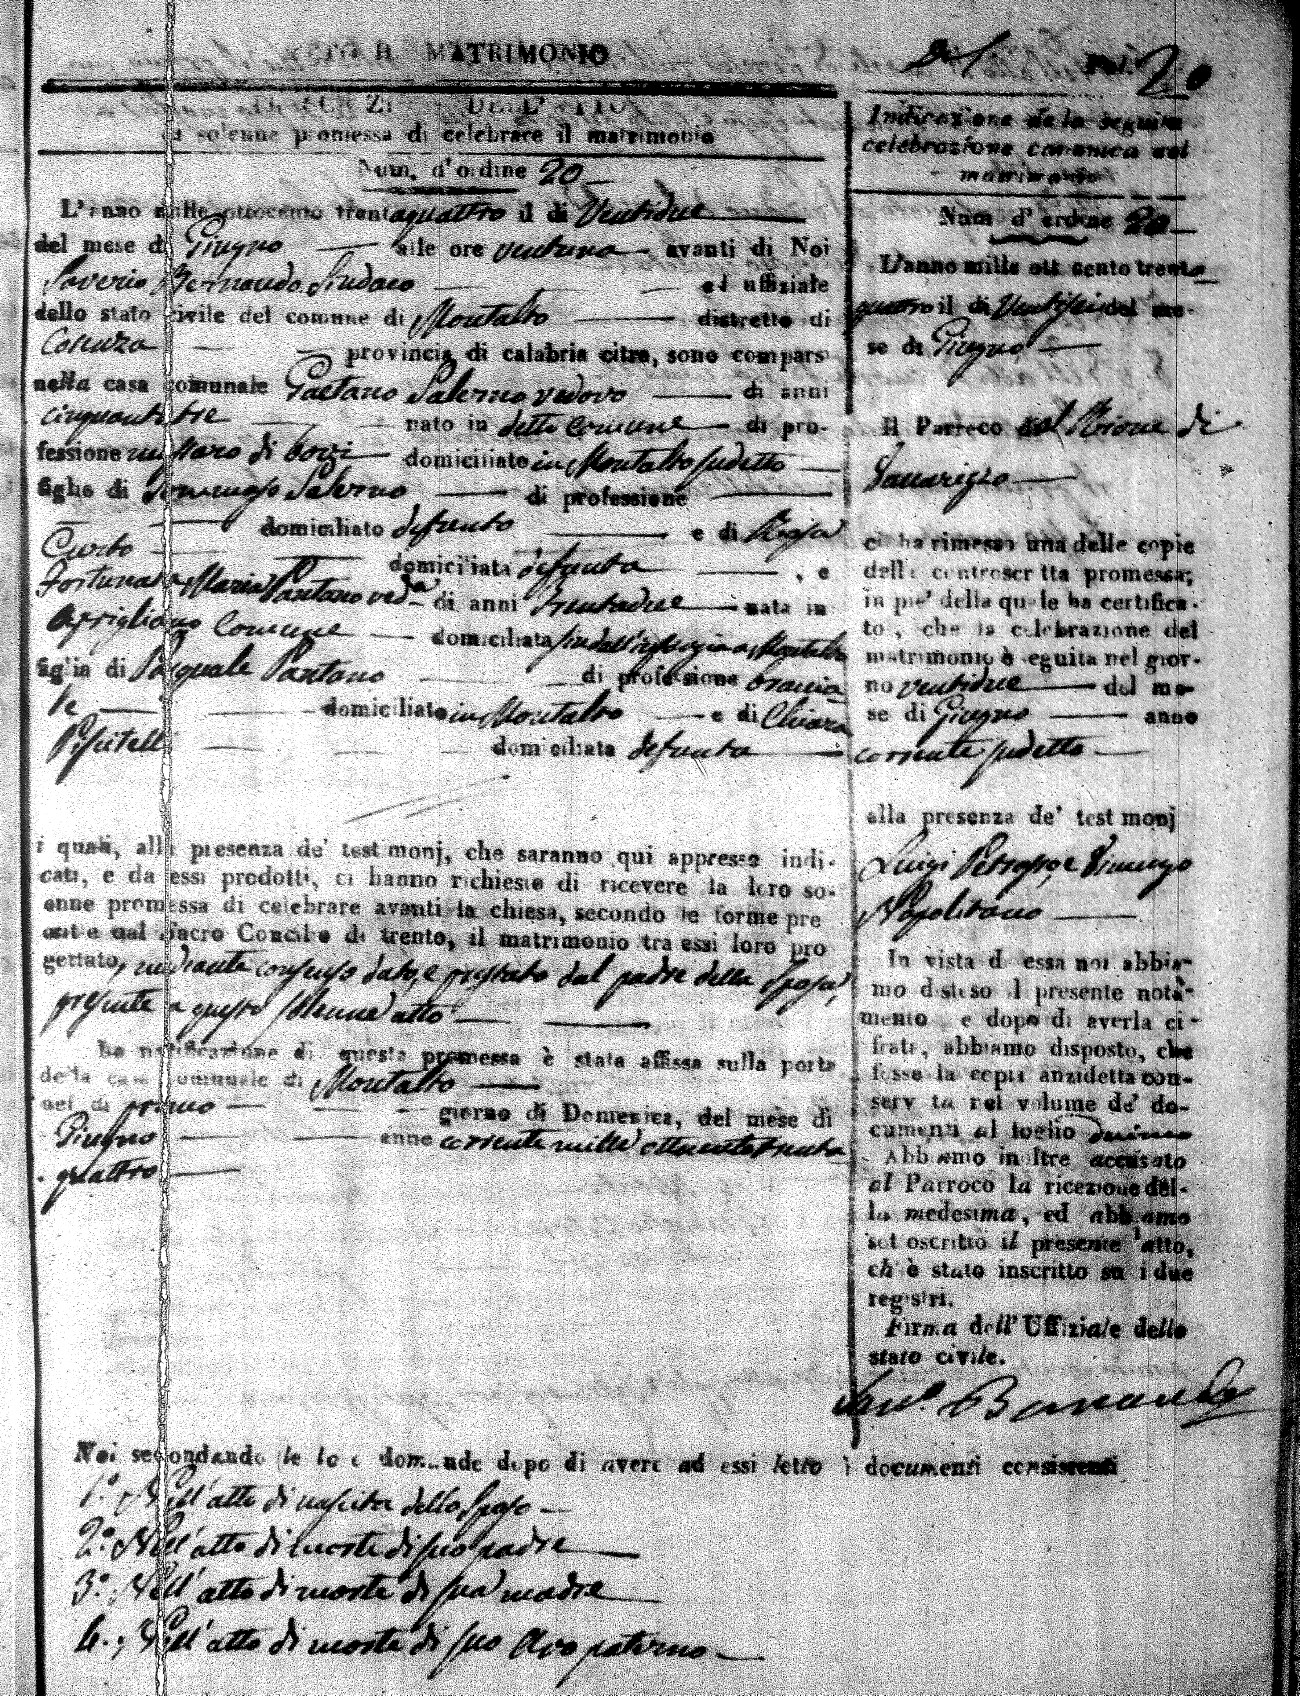 ATTO DI MATRIMONIO
Fol. 20
DELL' ATTO
di solenne promessa di celebrare il matrimonio
Num. d'ordine 20
L'anno mille ottocento trentaquattro il di Ventidue
del mese di Giugno alle ore ventuno avanti di Noi
Saverio Bernaudo Sindaco ed uffiziale
dello stato civile del comune di Montalto distretto di
Cosenza provincia di calabria citra, sono compars
nella casa comunale Gaetano Salerno vedovo di anni
cinquantatre nato in detto Comune di pro-
fessione di bovi domiciliato in Montalto sudetto
figlio di Domenico Salerno di professione
domiciliato defunto e di Rosa
Curto domiciliata defunta , e
Fortunata Maria Pantano ved.a di anni trentadue nata in
Aprigliano Comune domiciliata Montalto
figlia di Pasquale Pantano di professione braccia
le domiciliato in Montalto e di Chiara
domiciliata defunta
i quali, alla presenza de' testimonj, che saranno qui appresso indi-
cati, e da essi prodotti, ci hanno richiesto di ricevere la loro so-
enne promessa di celebrare avanti la chiesa, secondo le forme pre
dal Sacro Concilio di trento, il matrimonio tra essi loro pro
gettato, mediante consenso dato, e prestato dal padre della sposa,
presente a questo solenne atto
La notificazione di questa promessa è stata affissa sulla porta
della casa comunale di Montalto
nel di primo giorno di Domenica, del mese di
Giugno anno corrente mille ottocentotrenta
quattro
Indicazione de la seguita
celebrazione canonica del
matrimonio
Num d'ordine 20
L'anno mille ott cento trenta
quattro il di Ventisei del me-
se di Giugno
Il Parroco del Rione di
ci ha rimesso una delle copie
della controscritta promessa;
in pie' della quale ha certifica-
to, che la celebrazione del
matrimonio è seguita nel gior-
no ventidue del me-
se di Giugno anno
corrente sudetto
alla presenza de' testimonj
Luigi Petrasso, e Vincenzo
Napolitano
In vista di essa noi abbia-
mo disteso il presente notà-
mento e dopo di averla ci-
frata, abbiamo disposto, che
fosse la copia anzidetta con-
servata nel volume de' do-
cumenti al foglio
Abbiamo inoltre accusato
al Parroco la ricezione del-
la medesima, ed abbiamo
sottoscritto il presente atto,
ch' è stato inscritto su i due
registri.
Firma dell' Uffiziale dello
stato civile.
Sav.o Bernaudo
Noi secondando le loro domande dopo di avere ad essi letto i documenti consistenti
1.° Nell'atto di nascita dello sposo
2.° Nell'atto di morte di suo padre
3.° Nell'atto di morte di sua madre
4. Nell'atto di morte di suo Avo paterno